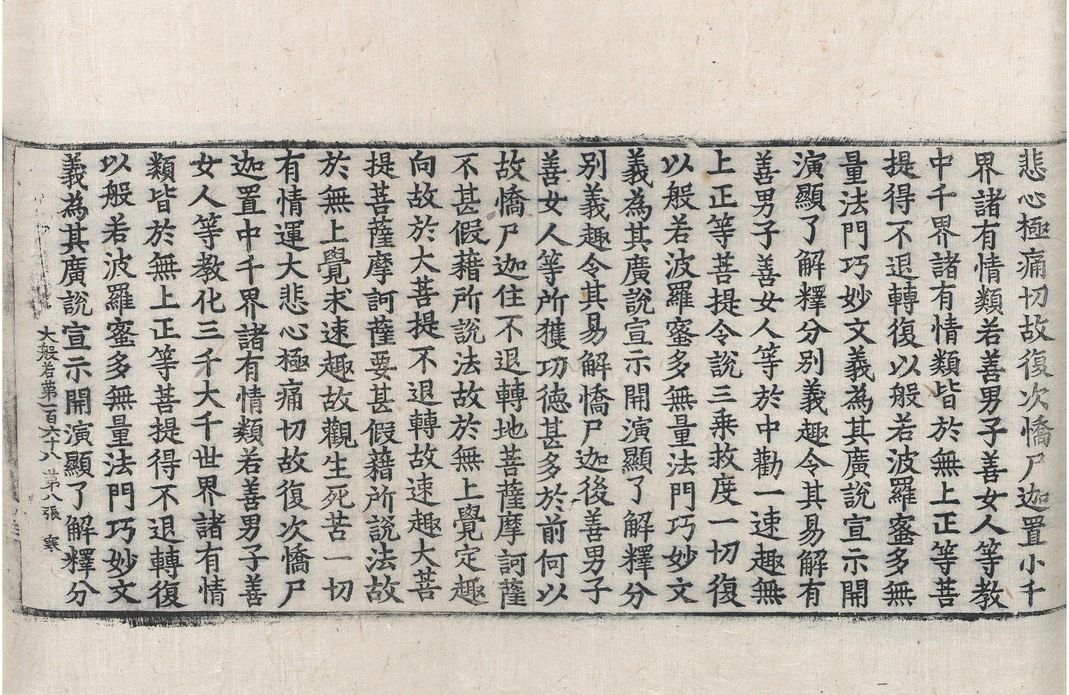 悲心極痛切故復次憍尸迦置小千
界諸有情類若善男子善女人等教
中千界諸有情類皆於無上正等菩
提得不退轉復以般若波羅蜜多無
量法門巧妙文義為其廣說宣示開
演顯了解釋分別義趣令其易解有
善男子善女人等於中勸一速趣無
上正等菩提令說三乘救度一切復
以般若波羅蜜多無量法門巧妙文
義為其廣說宣示開演顯了解釋分
別義趣令其易解憍尸迦後善男子
善女人等所獲功德甚多於前何以
故憍尸迦住不退轉地菩薩摩訶薩
不甚假藉所說法故於無上覺定趣
向故於大菩提不退轉故速趣大菩
提菩薩摩訶薩要甚假藉所說法故
於無上覺求速趣故觀生死苦一切
有情運大悲心極痛切故復次憍尸
迦置中千界諸有情類若善男子善
女人等教化三千大千世界諸有情
類皆於無上正等菩提得不退轉復
以般若波羅蜜多無量法門巧妙文
義為其廣說宣示開演顯了解釋分
大般若第一百六十八 第八張